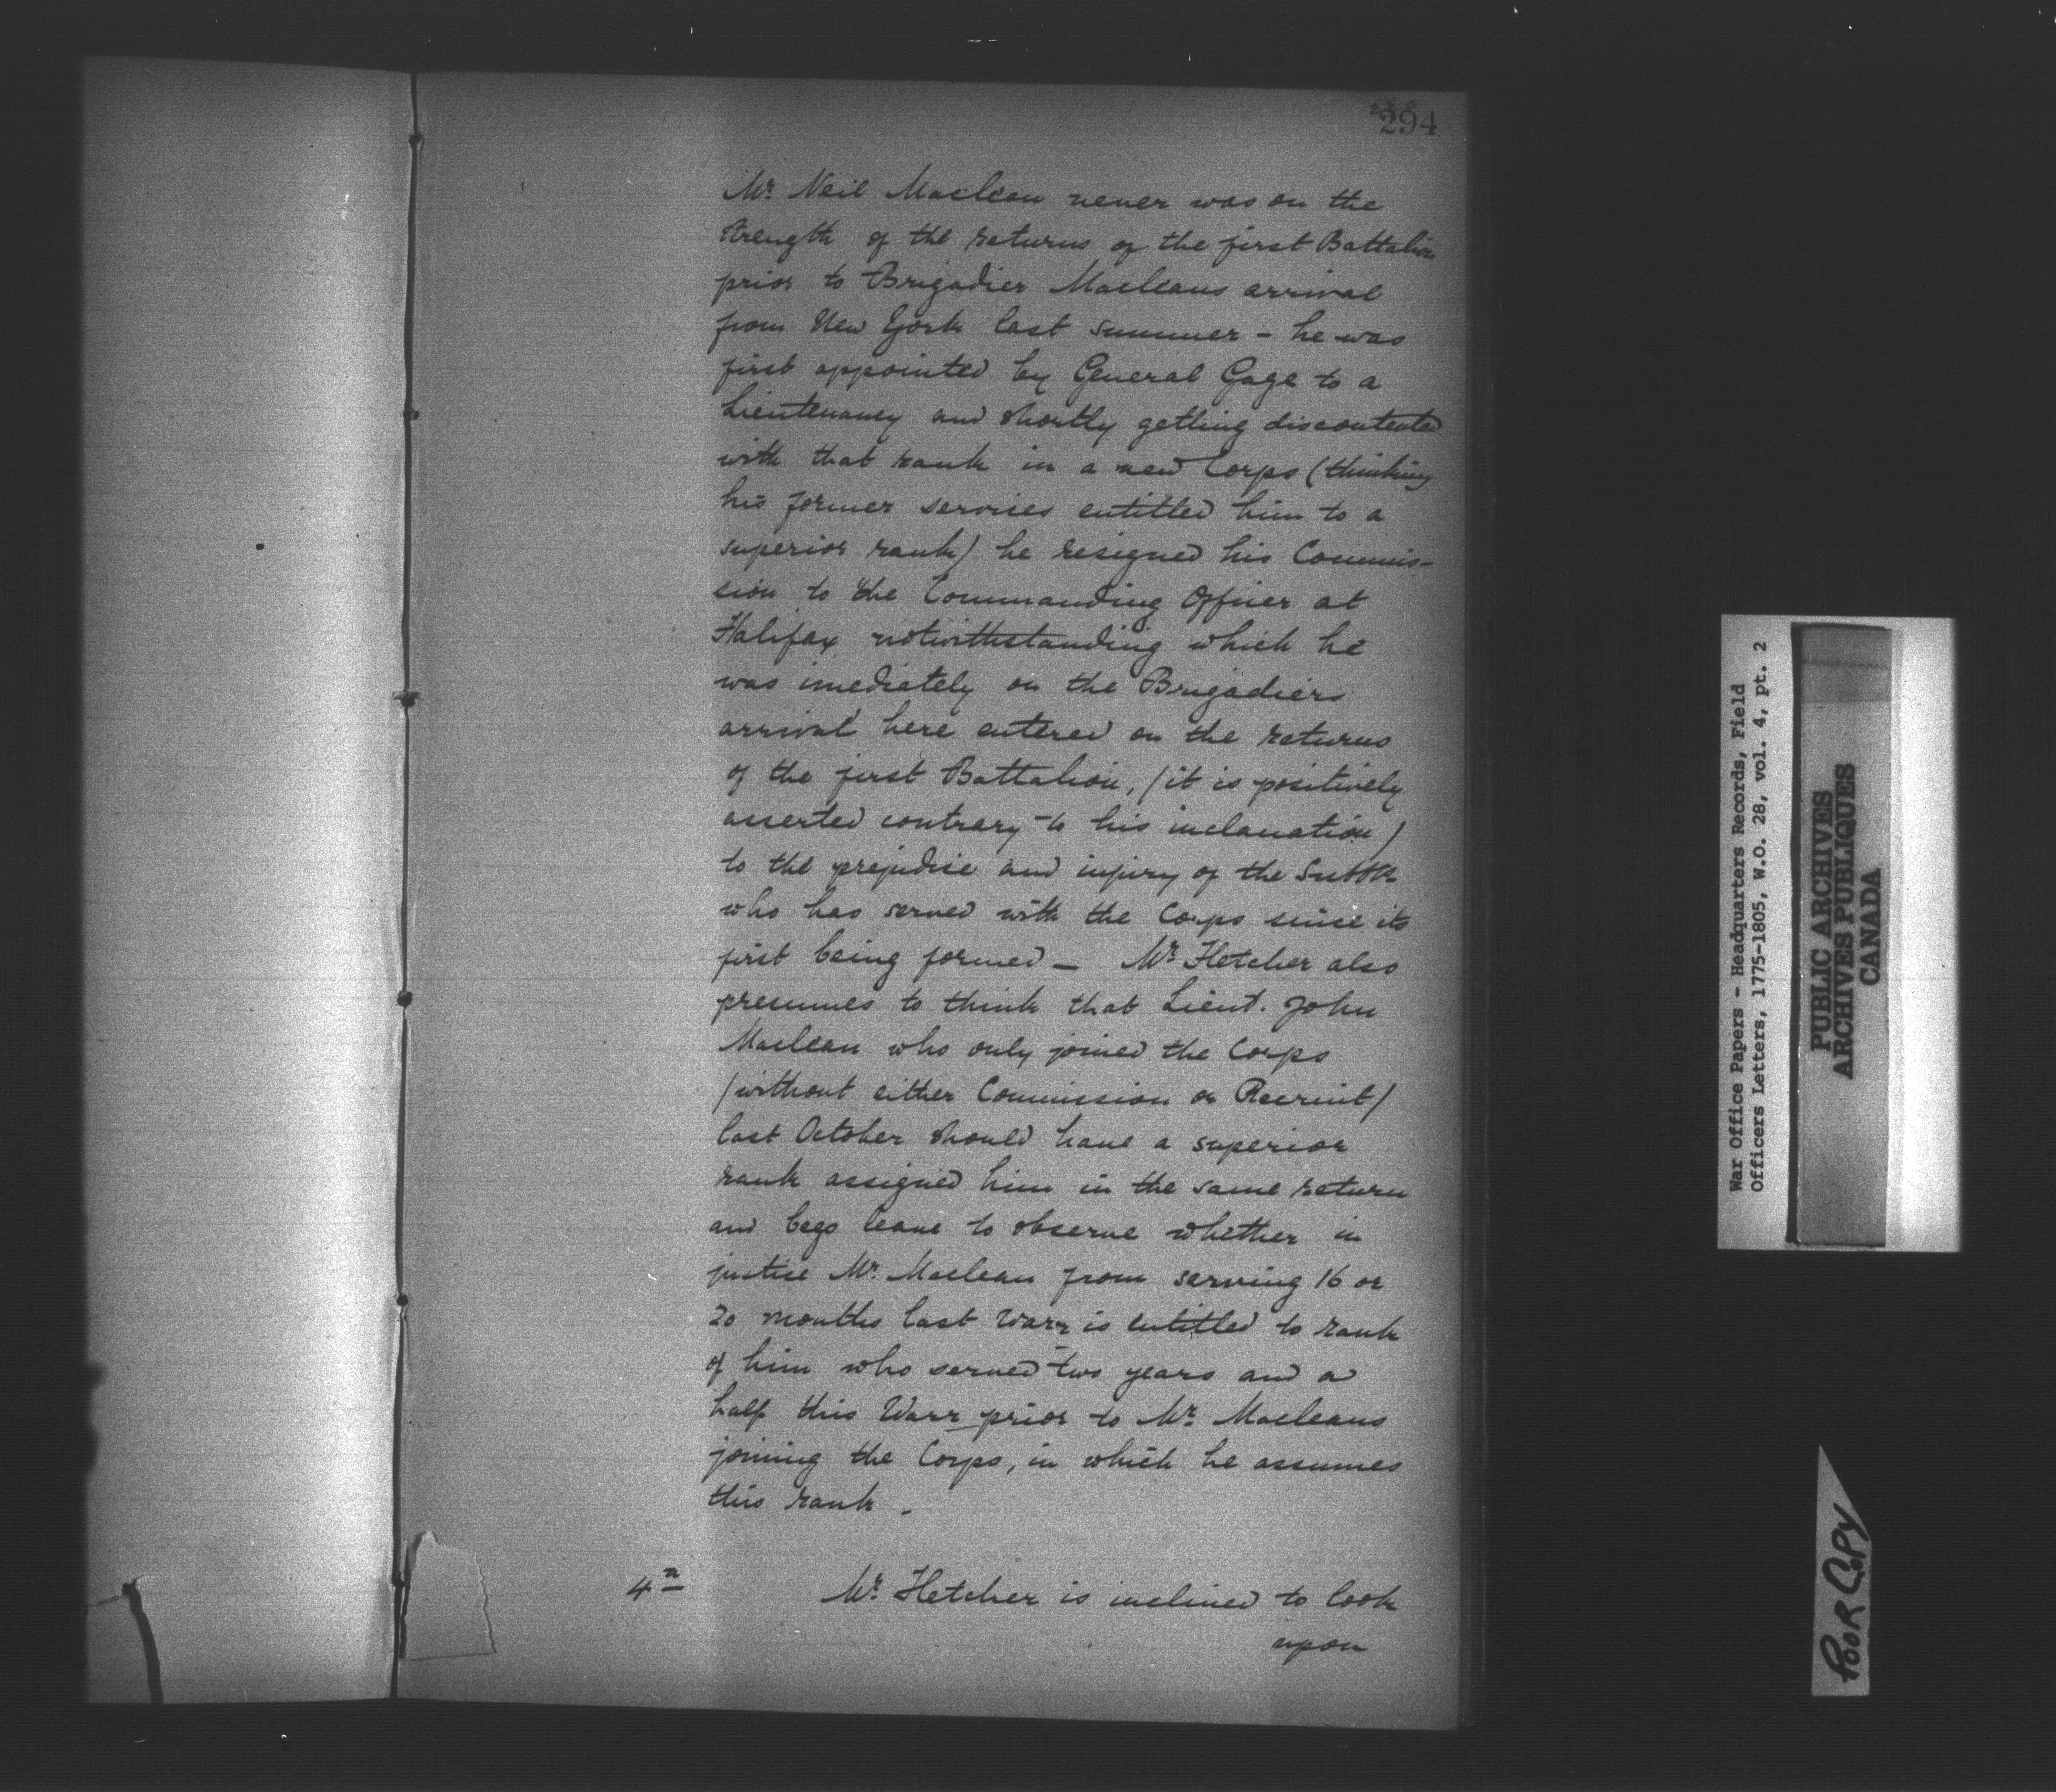 294
Mr. Neil Maclean never was on the
strength of the returns of the first Battalion
prior to Brigadier Macleans arrival
from New York last summer - he was
first appointed by General Gage to a
Lieutenancy and shortly getting discontented
with that rank in a new Corps (thinking
his former services entitled him to a
superior rank) he resigned his Commis-
sion to the Commanding Officer at
Halifax notwithstanding which he
was imediately on the Brigadiers
arrival here entered on the returns
of the first Battalion, (it is positively
asserted contrary to his inclanation)
to the prejudice and injury of the Subtlr
who has served with the Corps since its
first being formed — Mr Fletcher also
presumes to think that Lieut. John
Maclean who only joined the Corps
(without either Commission or Recruit)
last October should have a superior
rank assigned him in the same return
and begs leave to observe whether in
justice Mr. Maclean from serving 16 or
20 months last Warr is entitled to rank
of him who served two years and a
half this Warr prior to Mr. Macleans
joining the Corps, in which he assumes
this rank.
4
Mr. Fletcher is inclined to look
upon
War Office Papers - Headquarters Records, Field
Officers Letters, 1775-1805, W.O. 28, vol. 4, pt. 2
PUBLIC ARCHIVES
ARCHIVES PUBLIQUES
CANADA
POOR COPY